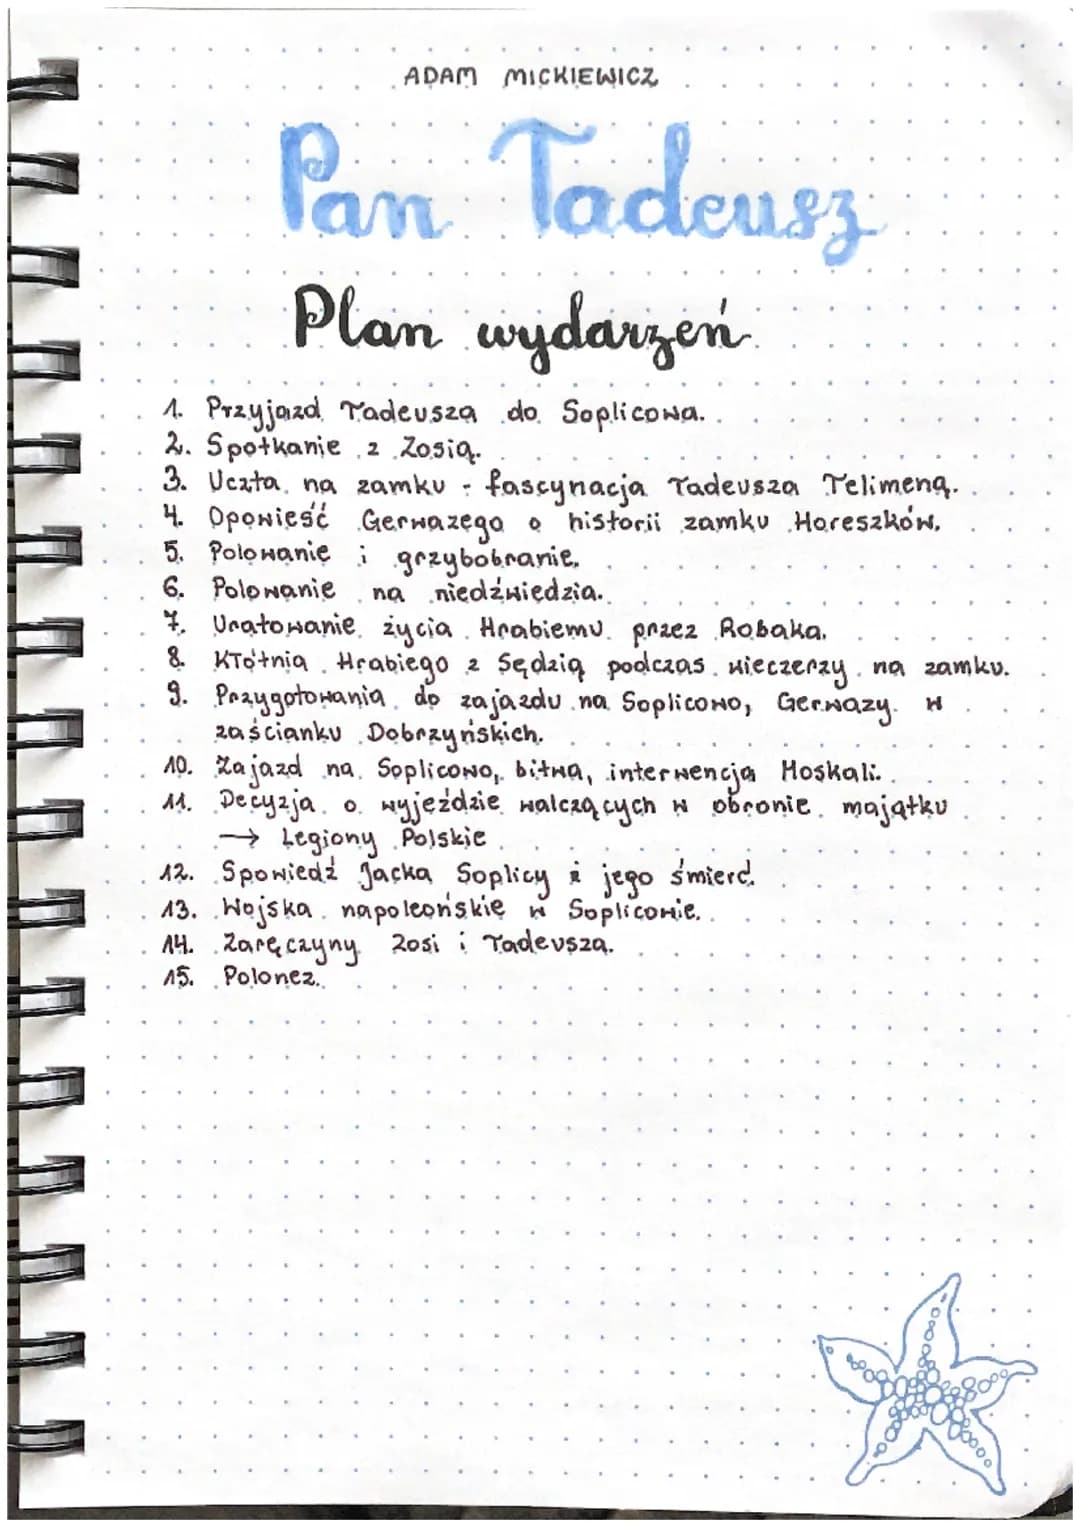 ADAM MICKIEWICZ
Pan Tadeusz
Plan wydarzeń
1. Przyjazd Tadeusza do Soplicowa.
2. Spotkanie z Zosią.
3. Uczta na zamku - fascynacja Tadeusza Telimeną.
4. Opowieść Gerwazego o historii zamku Horeszków.
5. Polowanie i grzybobranie.
6. Polowanie na niedźwiedzia.
7. Uratowanie życia Hrabiemu przez Robaka.
8. Kłótnia Hrabiego z Sędzią podczas wieczerzy na zamku.
9. Przygotowania do zajazdu na Soplicowo, Gerwazy w
zaścianku Dobrzyńskich.
10. Zajazd na Soplicowo, bitwa, interwencja Moskali.
11. Decyzja o wyjeździe walczących w obronie majątku
→ Legiony Polskie
12. Spowiedź Jacka Soplicy i jego śmierć.
13. Wojska napoleońskie w Soplicowie.
14. Zaręczyny Zosi i Tadeusza.
15. Polonez.